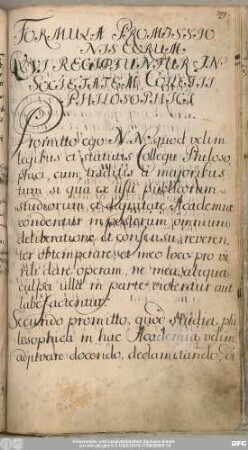 FORMULA PROMISSIO
NIS EORUM,
QVI RECIPIUNTUR IN
SOCIETATEM COLLEGII
PHILOSOPHICI
Promitto ego N.N. quod velim
legibus et statutis Collegii Philoso
phici, cum traditis a majoribus
tum si qua ex usu publicorum
studiorum et dignitate Academiæ
condentur in posterum omnium
deliberatione et consensu, reveren
ter obtemperare et meo loco pro vi
rili dare operam, ne mea aliqua
culpa ulla in parte violentur aut
labefactentur.
Secundo promitto, quod studia phi
losophica in hac Academia velim
adjuvare docendo, declamitando,